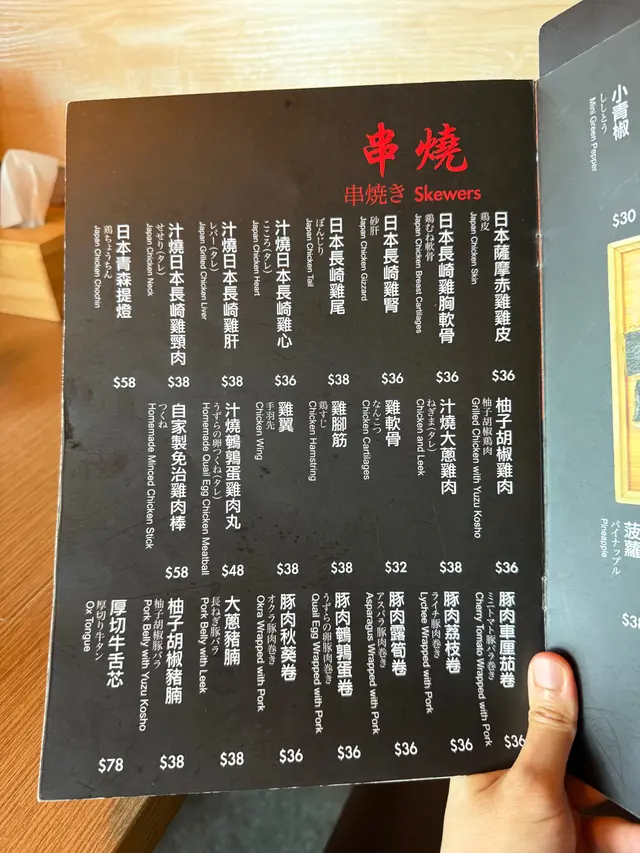 串燒
串焼き Skewers
日本薩摩赤雞雞皮
鶏皮
Japan Chicken Skin
$36
日本長崎雞胸軟骨
鶏むね軟骨
Japan Chicken Breast Cartilages
$36
日本長崎雞腎
砂肝
Japan Chicken Gizzard
$36
日本長崎雞尾
ぼんじり
Japan Chicken Tail
$38
汁燒日本長崎雞心
こころ(タレ)
Japan Chicken Heart
$36
汁燒日本長崎雞肝
レバー(タレ)
Japan Grilled Chicken Liver
$38
汁燒日本長崎雞頸肉
せせり(タレ)
Japan Chicken Neck
$38
日本青森提燈
鶏ちょうちん
Japan Chicken Chochin
$58
柚子胡椒雞肉
柚子胡椒鶏肉
Grilled Chicken with Yuzu Kosho
$36
汁燒大蔥雞肉
ねぎま(タレ)
Chicken and Leek
$38
雞軟骨
なんこつ
Chicken Cartilages
$32
雞腳筋
鶏すじ
Chicken Hamstring
$38
雞翼
手羽先
Chicken Wing
$38
汁燒鵪鶉蛋雞肉丸
うずらの卵つくね(タレ)
Homemade Quail Egg Chicken Meatball
$48
自家製免治雞肉棒
つくね
Homemade Minced Chicken Stick
$58
豚肉車厘茄卷
Cherry Tomato Wrapped with Pork
$36
豚肉荔枝卷
ライチ豚肉巻き
Lychee Wrapped with Pork
$36
豚肉露筍卷
アスパラ豚肉巻き
Asparagus Wrapped with Pork
$36
豚肉鵪鶉蛋卷
うずらの卵豚肉巻き
Quail Egg Wrapped with Pork
$36
豚肉秋葵卷
オクラ豚肉巻き
Okra Wrapped with Pork
$36
大蔥豬腩
長ねぎ豚バラ
Pork Belly with Leek
$38
柚子胡椒豬腩
柚子胡椒豚バラ
Pork Belly with Yuzu Kosho
$38
厚切牛舌芯
厚切り牛タン
Ox Tongue
$78
小青椒
ししとう
Mini Green Pepper
$30
菠蘿
パイナップル
Pineapple